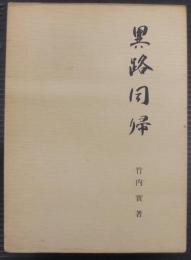 異路同帰
竹内實著